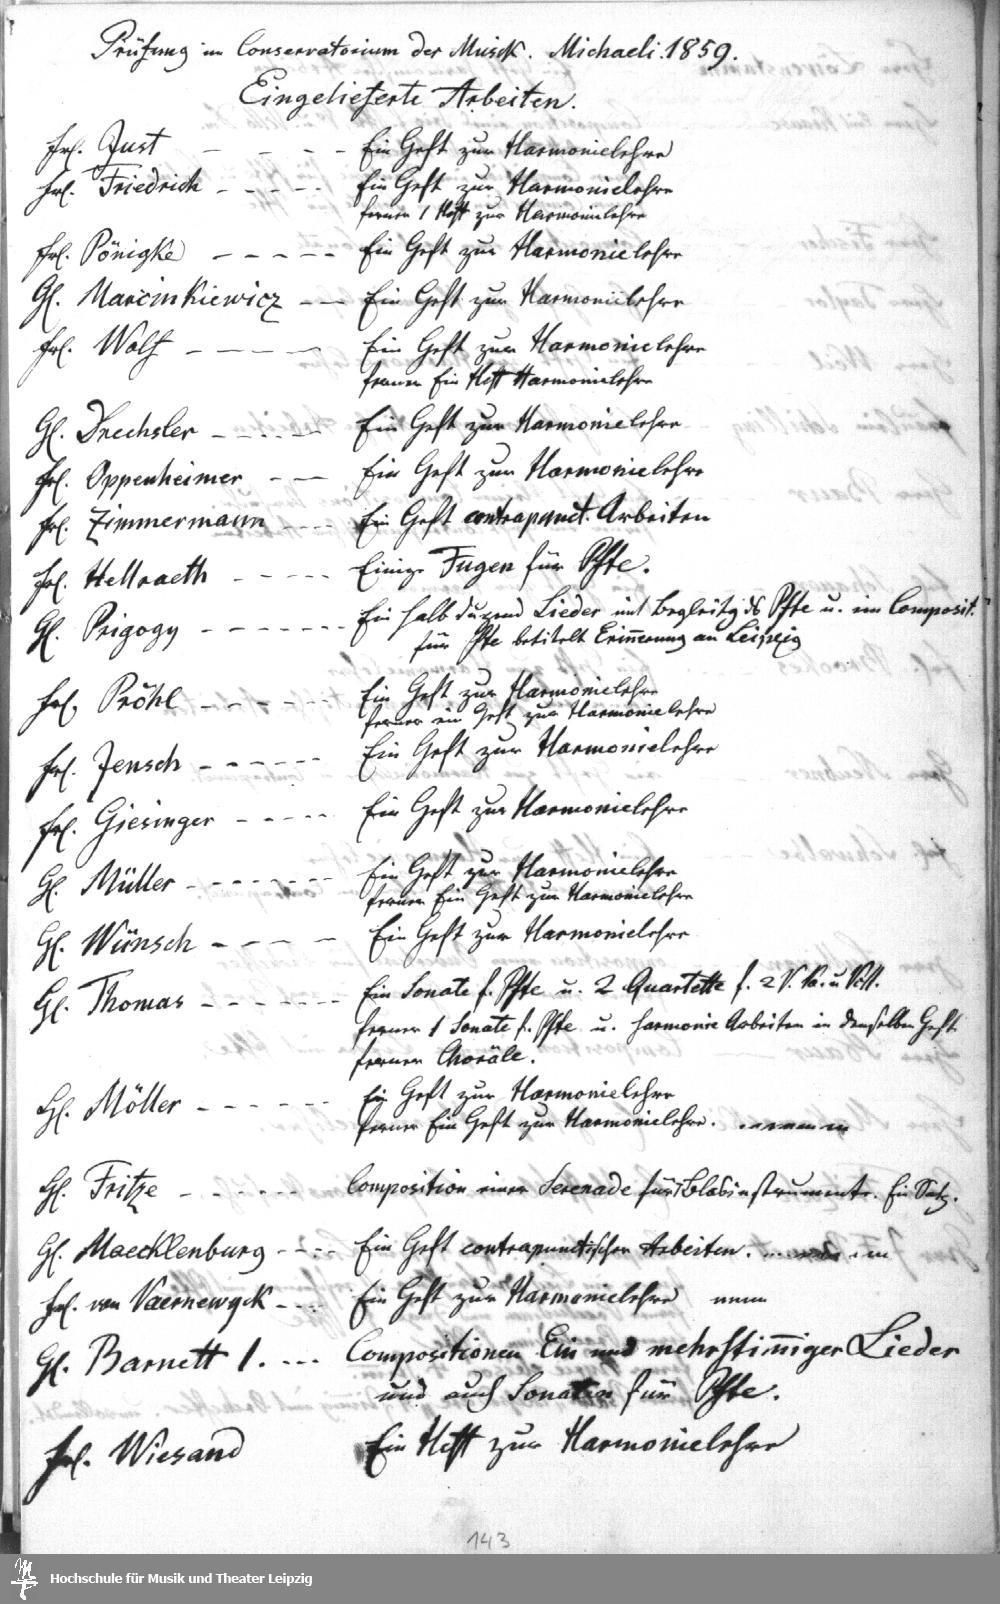 Prüfung im Conservatorium der Musik. Michaeli. 1859.
Eingelieferte Arbeiten.
Frl. Just - - - - Ein Heft zur Harmonielehre
Frl. Friedrich - - - - - Ein Heft zur Harmonielehre
ferner 1 Heft zur Harmonielehre
Frl. Pönigke - - - - - Ein Heft zur Harmonielehre
H. Marcinkiewicz - - Ein Heft zur Harmonielehre
Frl. Wolf - - - - - Ein Heft zur Harmonielehre
ferner Ein Heft Harmonielehre
H. Drechsler - - - - - Ein Heft zur Harmonielehre
Frl. Oppenheimer - - Ein Heft zur Harmonielehre
Frl. Zimmermann - - - Ein Heft contrapunct. Arbeiten
Frl. Hellraeth - - - - - Einige Fugen für Pfte.
H. Prigogy - - - - - - - Ein halb duzend Lieder mit Begleitg ds Pfte u. ein Composit.
für Pfte betitelt Erinnerung an Leipzig
Frl. Pröhl - - - - - - Ein Heft zur Harmonielehre
ferner ein Heft zur Harmonielehre
Frl. Jensch - - - - - - Ein Heft zur Harmonielehre
Frl. Giesinger - - - - - Ein Heft zur Harmonielehre
H. Müller - - - - - - - Ein Heft zur Harmonielehre
ferner Ein Heft zur Harmonielehre
H. Wünsch - - - - Ein Heft zur Harmonielehre
H. Thomas - - - - - - - Ein Sonate f. Pfte u. 2 Quartette f. 2 V. Va. u Vcll.
ferner 1 Sonate f. Pfte u. harmonie Arbeiten in demselben Heft
ferner Choräle.
H. Möller - - - - - - Ein Heft zur Harmonielehre
ferner Ein Heft zur Harmonielehre.
H. Fritze - - - - - - Composition einer Serenade für Blasinstrumente. Ein Satz.
H. Maecklenburg - - - - Ein Heft contrapunctischer Arbeiten.
Frl. van Vaernewyck - - - Ein Heft zur Harmonielehre
H. Barnett 1. - - - Compositionen Ein und mehrstim̅iger Lieder
und auch Sonaten für Pfte.
Frl. Wiesand Ein Heft zur Harmonielehre
143
Hochschule für Musik und Theater Leipzig